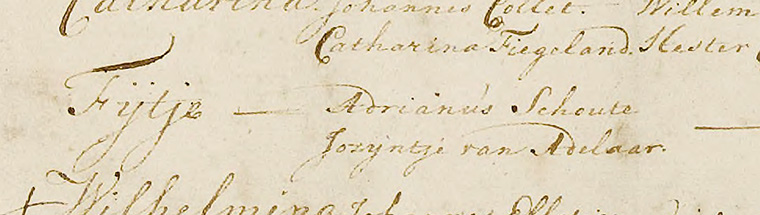 Catharina. Johannes Collet. - Willem
Catharina Fiegeland. Hester
Fijtje — Adrianus Schoute —
Jozijntje van Adelaar.
Wilhelmina